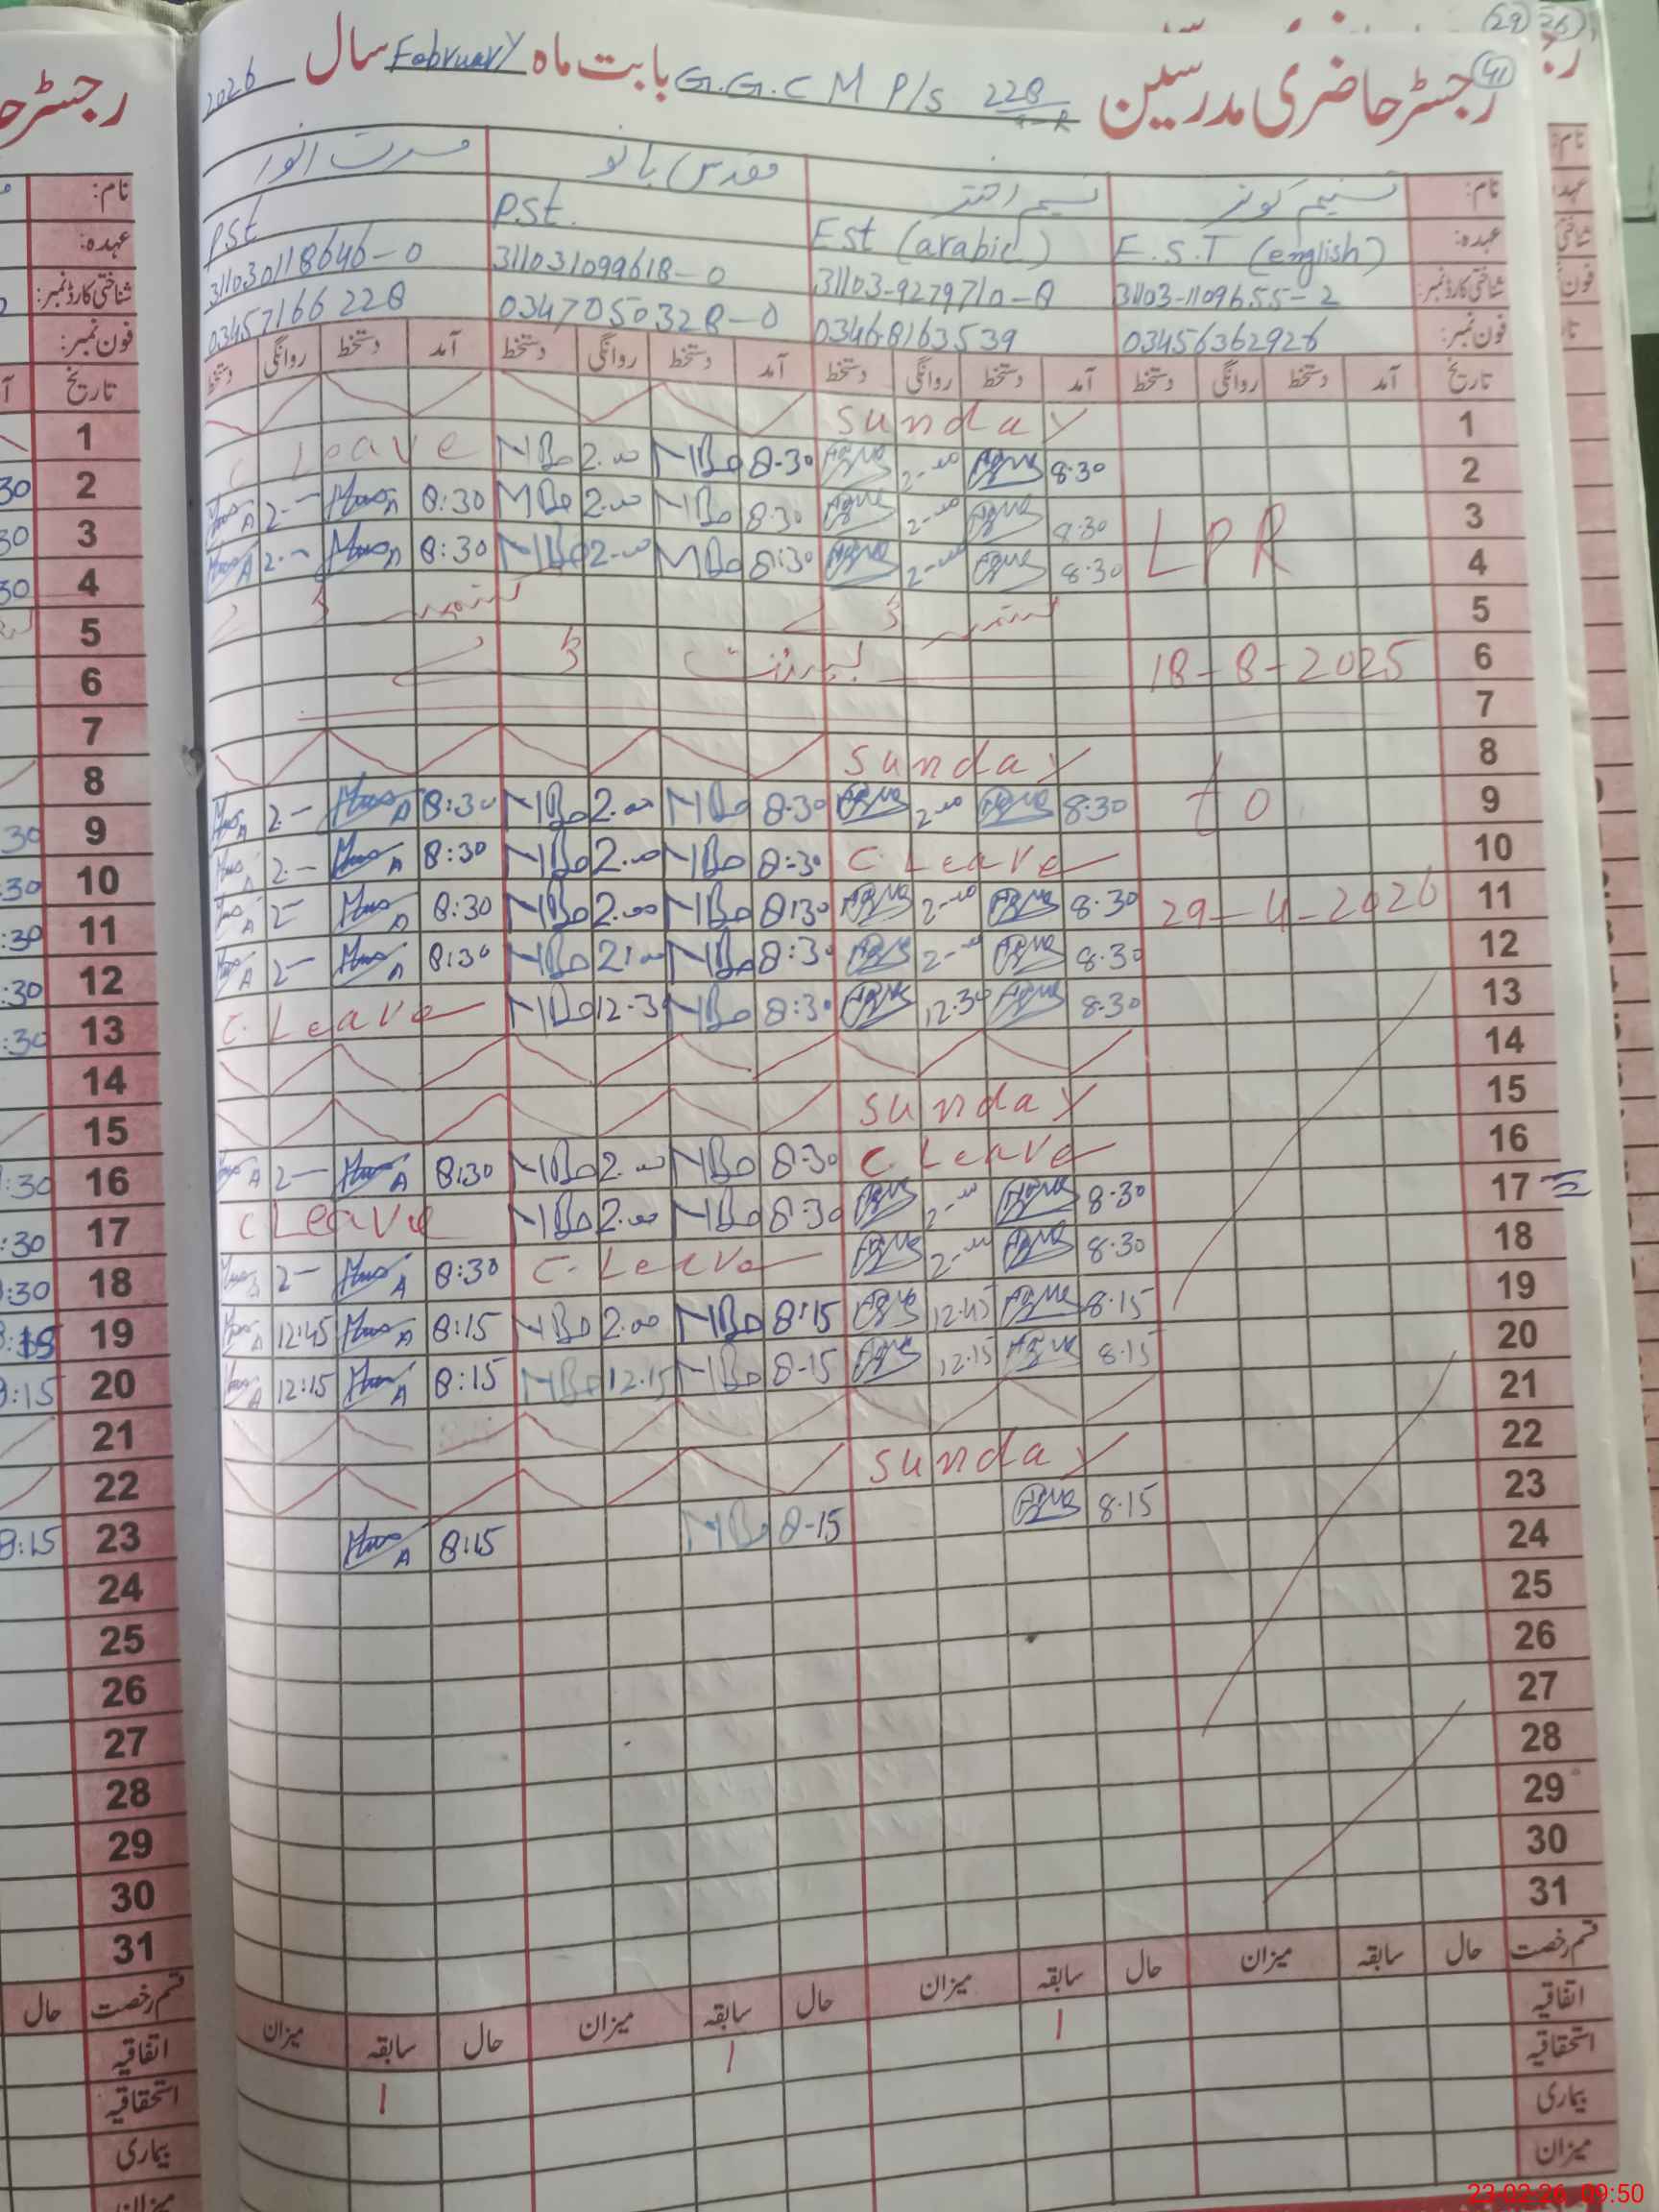 رجسٹر حاضری مدرسین G.G.C M P/s 228 بابت ماہ February سال 2026
41
29 26
نام: تسنیم کوثر نسیم اختر مقدس بانو مسرت انور
عہدہ: E.S.T (english) Est (arabic) P.St. PSt
شناختی کارڈ نمبر: 31103-1109655-2 31103-9279710-8 311031099618-0 311030118646-0
فون نمبر: 03456362926 03468163539 0347050328-0 03457166228
تاریخ آمد دستخط روانگی دستخط آمد دستخط روانگی دستخط آمد دستخط روانگی دستخط آمد دستخط روانگی دستخط
1 Sunday
2 8:30 2-00 8-30 MBo 2.00 MBo C Leave
3 8:30 2-00 8:30 MBo 2.00 MBo 8:30 2-
4 LPR 8:30 2-00 8:30 MBo 2.00 MBo 8:30 2-
5
6 18-8-2025
7
8 Sunday
9 to 8:30 2-00 8:30 MBo 2.00 MBo 8:30 2-
10 C. Leave 8:30 MBo 2.00 MBo 8:30 2-
11 29-4-2026 8.30 2-00 8:30 MBo 2.00 MBo 8:30 2-
12 8.30 2-00 8:30 MBo 2:00 MBo 8:30 2-
13 8.30 12.30 8:30 MBo 12-3 MBo C. Leave
14
15 Sunday
16 C. Leave 8:30 MBo 2.00 MBo 8:30 2-
17 8.30 2-00 8:30 MBo 2.00 MBo C Leave
18 8.30 2-00 C. Leave 8:30 2-
19 8.15 12.45 8:15 MBo 2.00 MBo 8:15 12:45
20 8.15 12.15 8-15 MBo 12.15 MBo 8:15 12:15
21
22 Sunday
23 8.15 8-15 MBo 8:15
24
25
26
27
28
29
30
31
قسم رخصت حال سابقہ میزان حال سابقہ میزان حال سابقہ میزان حال سابقہ میزان
اتفاقیہ 1 1 1
استحقاقیہ
بیماری
میزان
رجسٹر
نام:
عہدہ:
شناختی کارڈ نمبر:
فون نمبر:
تاریخ
1
2
3
4
5
6
7
8
9
10
11
12
13
14
15
16
17
18
19
20
21
22
23 8:15
24
25
26
27
28
29
30
31
قسم رخصت حال
اتفاقیہ
استحقاقیہ
بیماری
میزان
23-02-26, 09:50